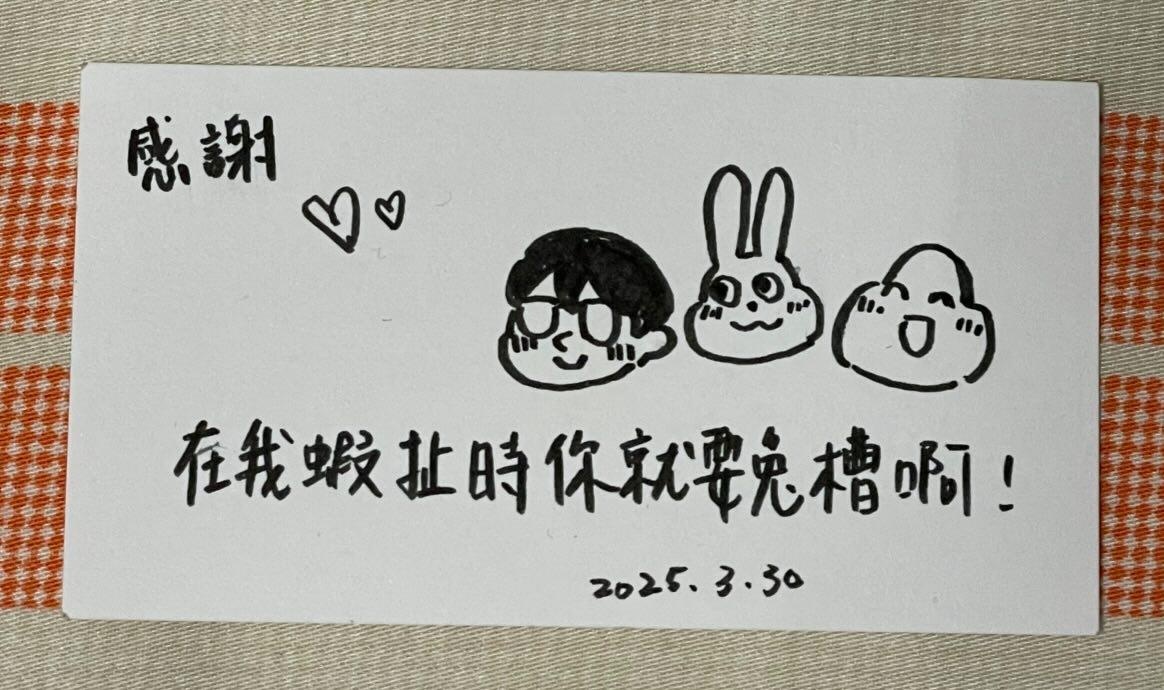 感謝
在我蝦扯時你就要兔槽啊!
2025.3.30